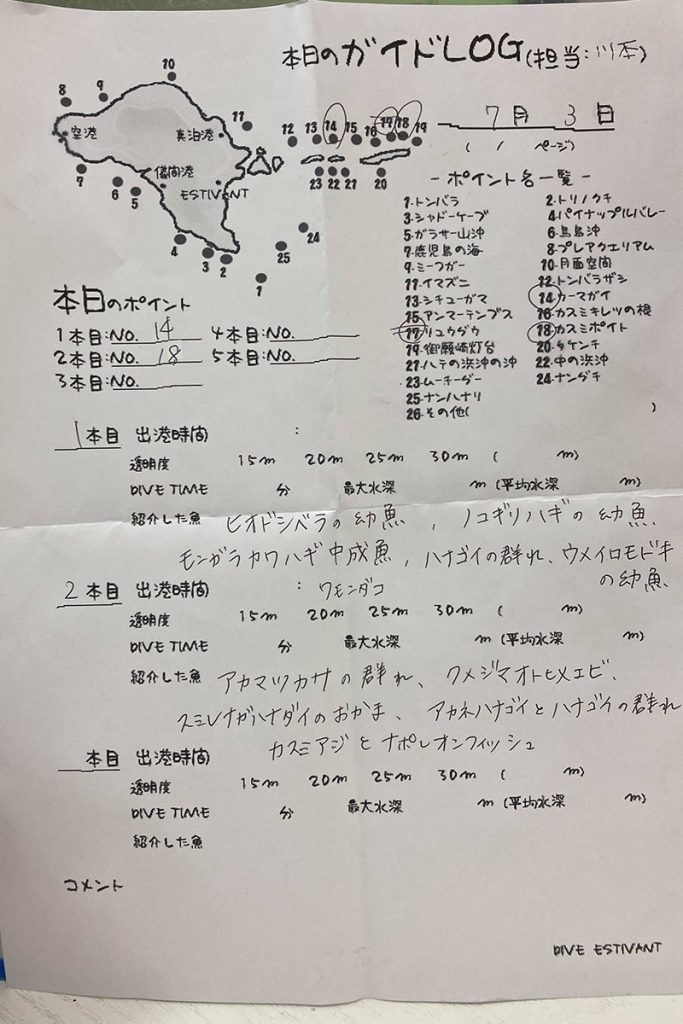 本日のガイドLOG(担当:川本)
7月 3日
( / ページ)
10
8 9
空港
11
真泊港
儀間港
ESTIVANT
7
6
5
4
3 2
1
25
24
12 13 14 15 16 17 18 19
23 22 21 20
-ポイント名一覧-
1.トンバラ 2.トリノクチ
3.シャドーケーブ 4.パイナップルバレー
5.ガラサー山沖 6.鳥島沖
7.鹿児島の海 8.プレアクエリアム
9.ミーフガー 10.月面空間
11.イマズニ 12.トンバラザシ
13.シチューガマ 14.カーマガイ
15.アンマーテンプス 16.カスミキレツの根
17.リュウダウ 18.カスミポイト
19.御願崎灯台 20.タケンチ
21.ハテの浜沖の沖 22.中の浜沖
23.ムーチーダー 24.ナンダチ
25.ナンハナリ
26.その他( )
本日のポイント
1本目:NO. 14 4本目:NO.
2本目:NO. 18 5本目:NO.
3本目:NO.
1本目 出港時間 :
透明度 15m 20m 25m 30m ( m)
DIVE TIME 分 最大水深 m (平均水深 m)
紹介した魚 ヒオドシベラの幼魚, ノコギリハギの幼魚
モンガラカワハギ中成魚, ハナゴイの群れ、ウメイロモドキの幼魚
ワモンダコ
2本目 出港時間 :
透明度 15m 20m 25m 30m ( m)
DIVE TIME 分 最大水深 m (平均水深 m)
紹介した魚 アカマツカサの群れ、クメジマオトヒメエビ、
スミレナガハナダイのおかま、アカネハナゴイとハナゴイの群れ
カスミアジとナポレオンフィッシュ
本目 出港時間 :
透明度 15m 20m 25m 30m ( m)
DIVE TIME 分 最大水深 m (平均水深 m)
紹介した魚
コメント
DIVE ESTIVANT